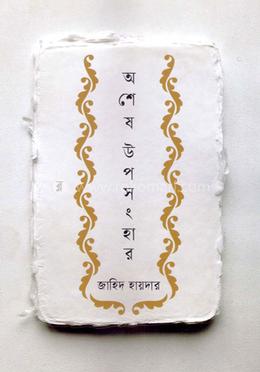 অশেষ উপসংহার
র
জাহিদ হায়দার